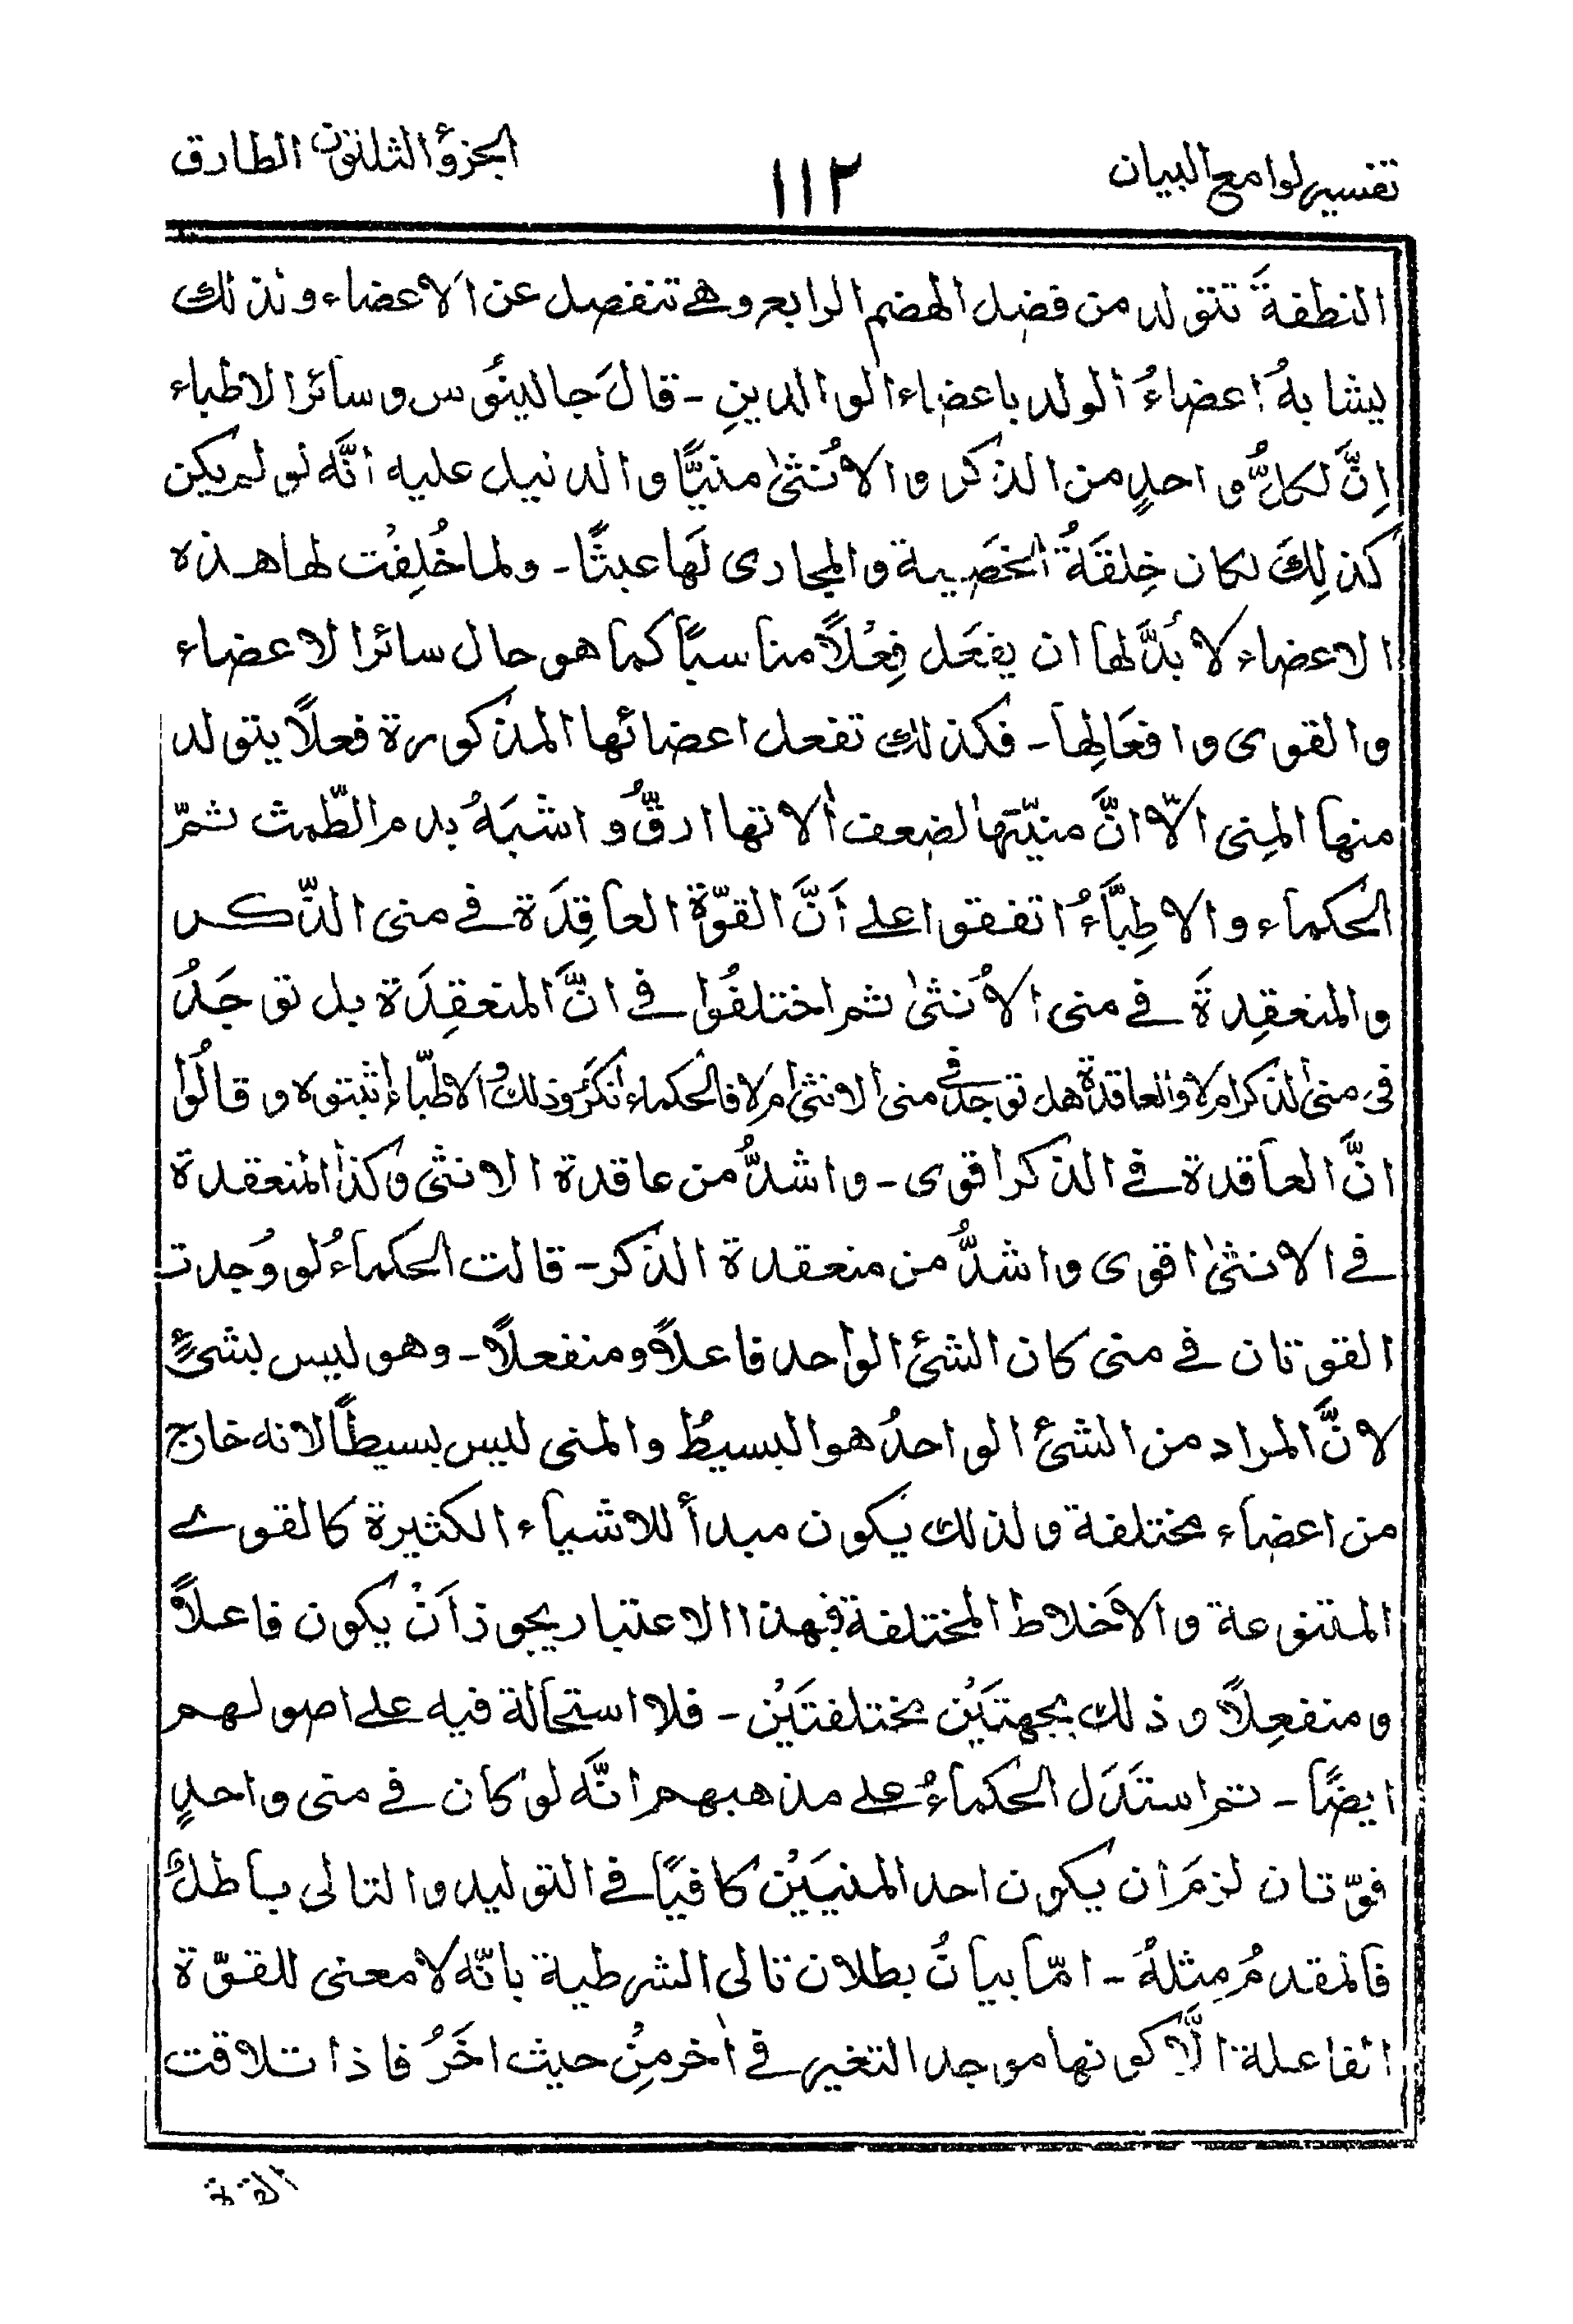 تفسير لوامع البيان ١١٢ الجزؤ الثلثون الطارق
النطفةَ تتولد من فضل الهضم الرابع وهي تنفصل عن الاعضاء ولذلك
يشابهُ اعضاءُ الولد باعضاء الوالدينِ - قالَ جالينوس وسائر الاطباء
اِنَّ لكلِّ واحدٍ من الذكر والاُنثىٰ منيًّا والدليل عليه انَّه لو لم يكن
كذلِكَ لكان خِلقَةُ الخَصية والمجارى لَها عبثًا - ولما خُلِقْت لها هذه
الاعضاء لا بُدَّ لها ان يفعَل فِعْلًا مناسبًا كما هو حال سائر الاعضاء
والقوى وافعَالِها - فكذلك تفعل اعضائها المذكورة فعلًا يتولد
منها المِنى الّا انَّ منيّتها لضعف اٰلاتها ارقُّ و اشبَهُ بدم الطّمث ثمّ
الحكماء والاطِبَّاءُ اتفقوا على اَنَّ القوّة العاقِدَة في منى الذّكر
والمنعقِدةَ في منى الاُنثىٰ ثم اختلفُوا في انَّ المنعقِدَة بل توجَدُ
في منى الذكر ام لا والعاقدة هل توجد في منى الانثىٰ ام لا فالحكماء انكَرو ذلك والاطبّاء اثبتوه وقالُوا
انَّ العاقدة في الذكر اقوى - واشدُّ من عاقدة الانثى وكذا المنعقدة
في الانثىٰ اقوى واشدُّ من منعقدة الذكر - قالت الحكماءُ لو وُجدت
القوتان في منى كان الشئ الواحد فاعلًا ومنفعلًا - وهو ليس بشئٍ
لانَّ المراد من الشئ الواحدُ هو البسيطُ والمنى ليس بسيطًا لانه خارج
من اعضاء مختلفة ولذلك يكون مبدأ للاشياء الكثيرة كالقوى
المتنوعة والاَخلاط المختلفة فبهذا الاعتبار يجوز اَنْ يكون فاعلًا
ومنفعِلًا وذلك بجهتَيْن مختلفتَيْن - فلا استحالة فيه على اصولهم
ايضًا - ثم استدَل الحكماءُ على مذهبهم انَّه لو كان في منى واحدٍ
قوّتان لزمَ ان يكون احد المنيَيْن كافيًا في التوليد والتالى باطلٌ
فالمقدمُ مِثلهُ - امّا بيانُ بطلان تالى الشرطية بانّه لا معنى للقوّة
الفاعلة الَّا كونها موجد التغير في اٰخر مِنْ حيث اخَرُ فاذا تلاقت
القوة